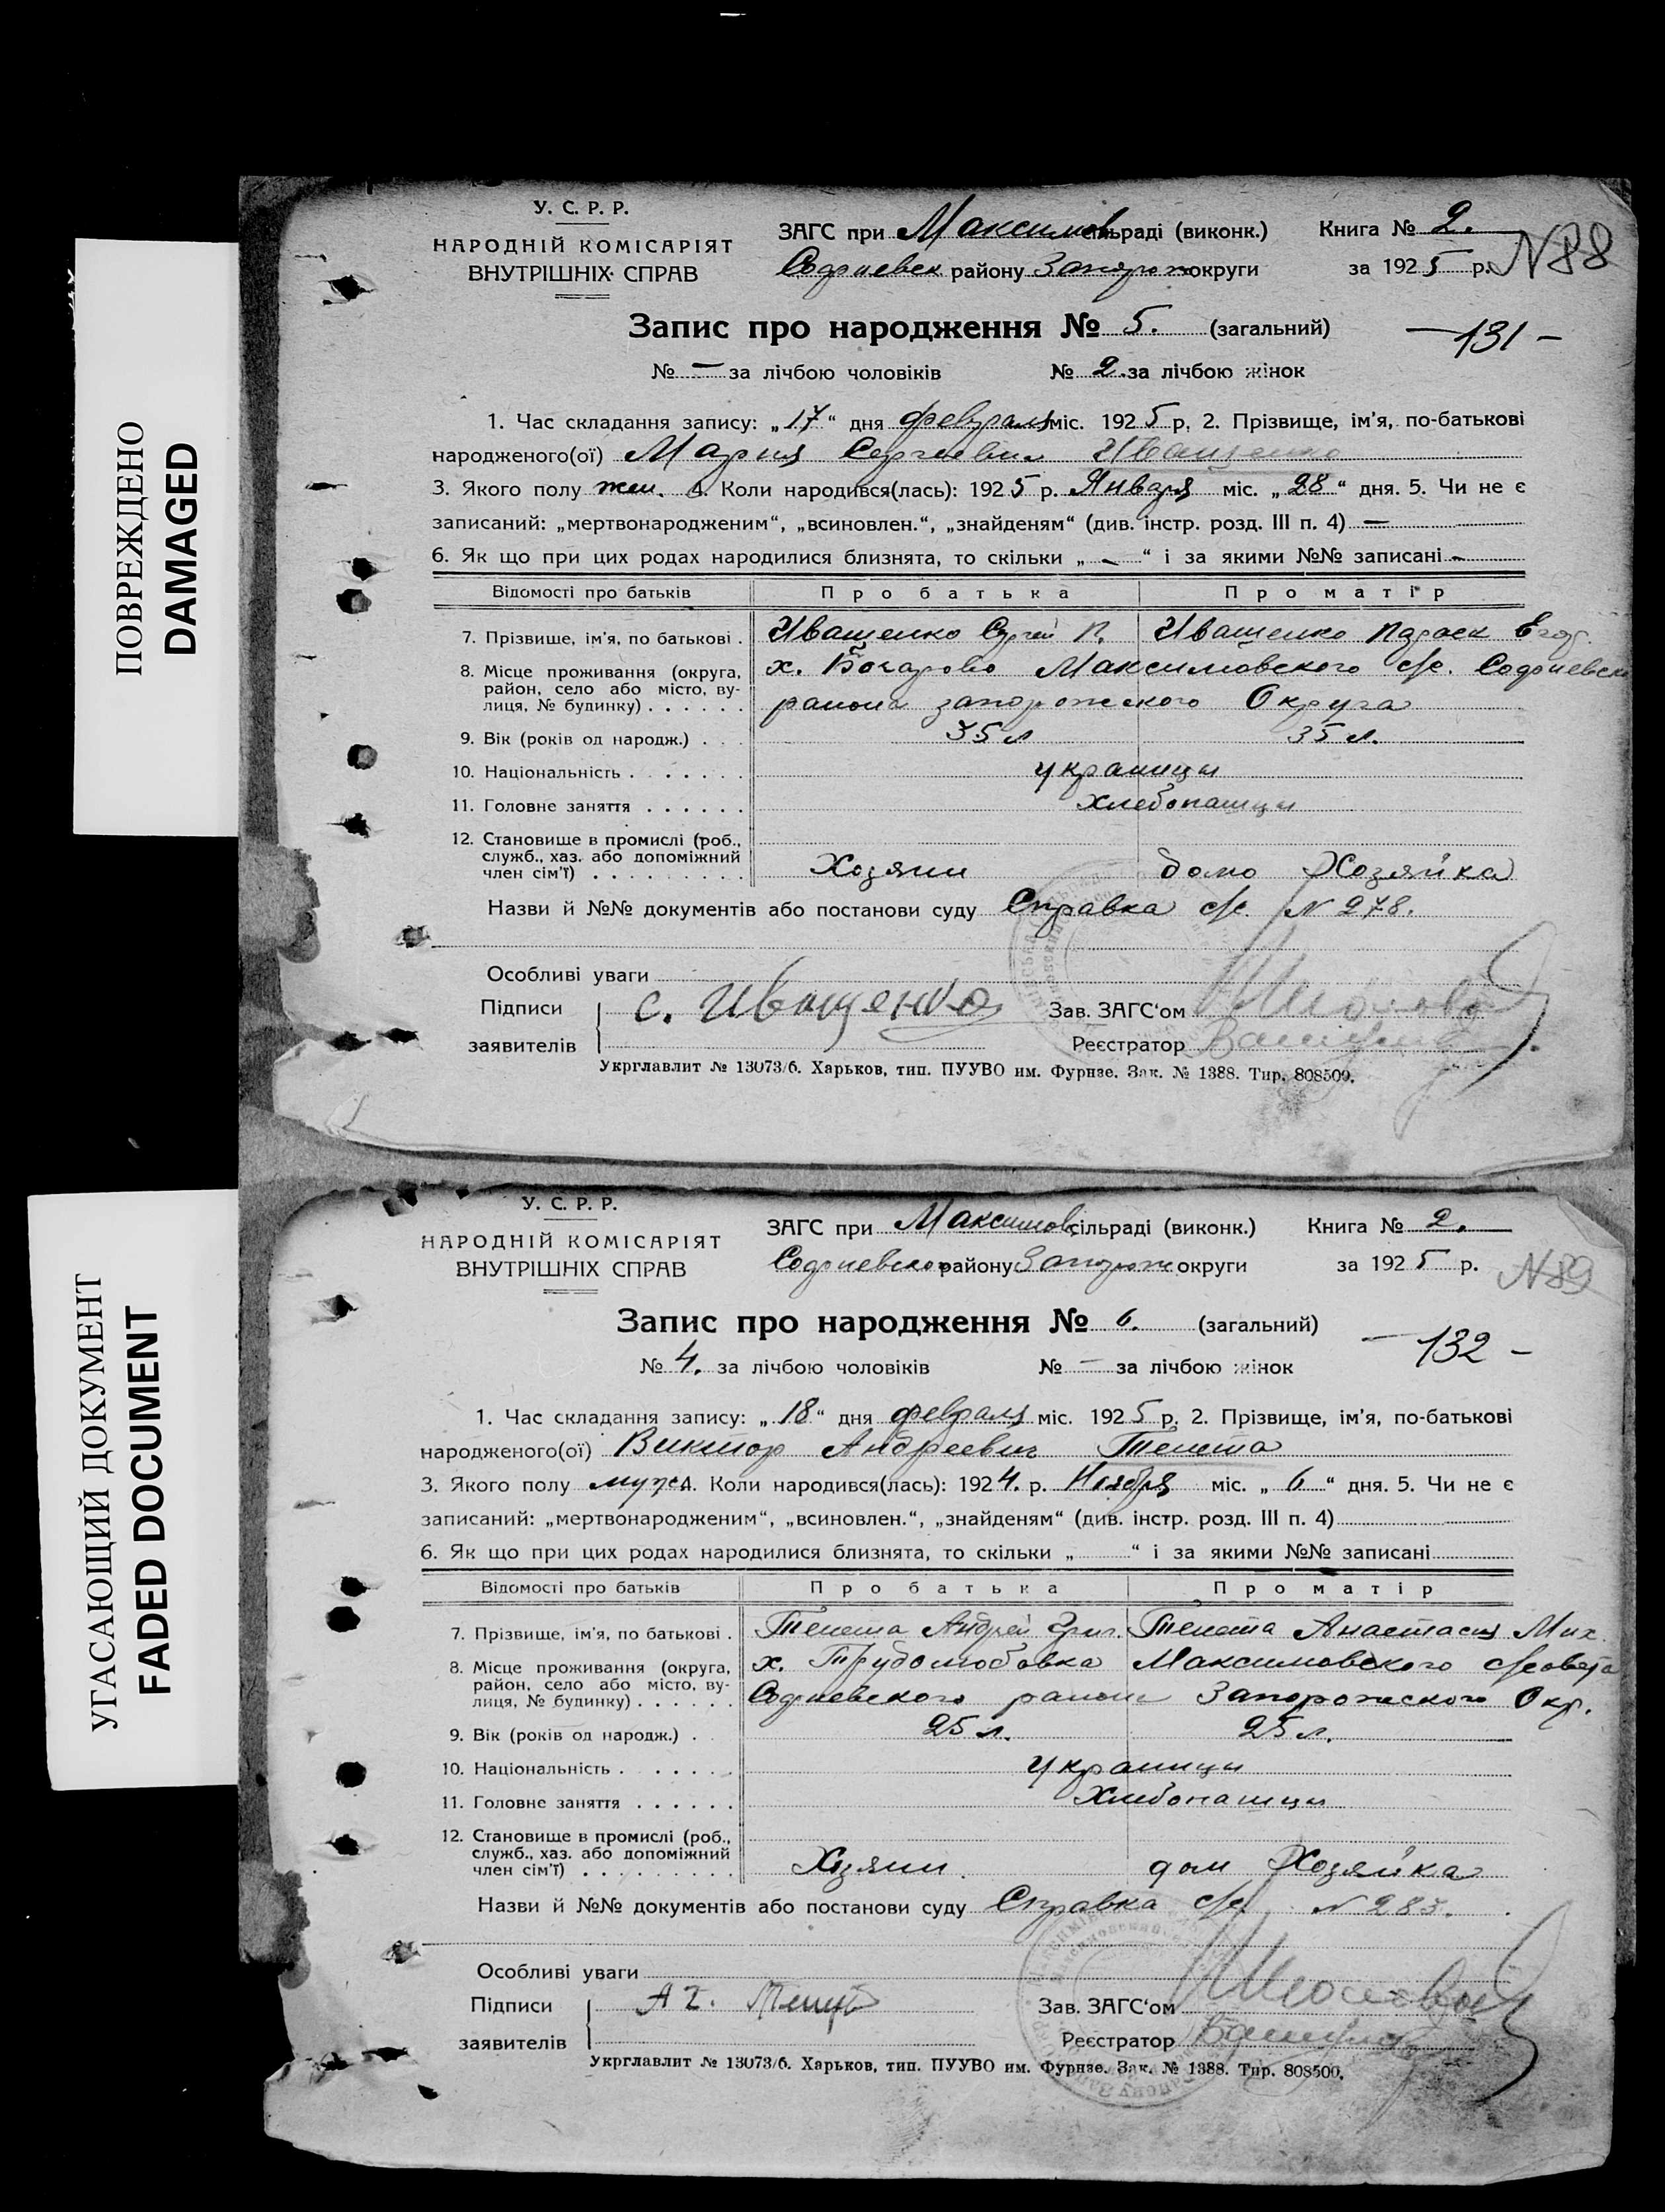 ПОВРЕЖДЕНО
DAMAGED
УГАСАЮЩИЙ ДОКУМЕНТ
FADED DOCUMENT
У. С. Р. Р.
НАРОДНІЙ КОМІСАРІЯТ
ВНУТРІШНІХ СПРАВ
ЗАГС при Максимов сільраді (виконк.)
Софиевск району Запорож округи
Книга № 2.
за 1925 р.
N88
Запис про народження № 5. (загальний)
— 131 —
№ — за лічбою чоловіків № 2. за лічбою жінок
1. Час складання запису: „17“ дня февраля міс. 1925 р. 2. Прізвище, ім'я, по-батькові
народженого(ої) Мария Сергеевна Иващенко
3. Якого полу жен. 4. Коли народився(лась): 1925 р. Января міс. „28“ дня. 5. Чи не є
записаний: „мертвонародженим“, „всиновлен.“, „знайденям“ (див. інстр. розд. III п. 4) —
6. Як що при цих родах народилися близнята, то скільки „ — “ і за якими №№ записані —
Відомості про батьків Про батька Про матір
7. Прізвище, ім'я, по батькові . Иващенко Сергей П. Иващенко Параск Егор.
8. Місце проживання (округа, район, село або місто, вулиця, № будинку) . . . . . . х. Бочарово Максимовского с/с. Софиевск
района запорожского Округа
9. Вік (років од народж.) . . . 35 л 35 л.
10. Національність . . . . . . . украинцы
11. Головне заняття . . . . . . Хлебопашцы
12. Становище в промислі (роб., служб., хаз. або допоміжний член сім'ї) . . . . . . . . . Хозяин домо Хозяйка
Назви й №№ документів або постанови суду Справка с/с. N 278.
Особливі уваги
Підписи заявителів С. Иващенко
Зав. ЗАГС'ом
Реєстратор
Укрглавлит № 13073/б. Харьков, тип. ПУУВО им. Фрунзе. Зак. № 1388. Тир. 808500.
У. С. Р. Р.
НАРОДНІЙ КОМІСАРІЯТ
ВНУТРІШНІХ СПРАВ
ЗАГС при Максимов сільраді (виконк.)
Софиевского району Запорож округи
Книга № 2.
за 1925 р.
N89
Запис про народження № 6. (загальний)
— 132 —
№ 4. за лічбою чоловіків № — за лічбою жінок
1. Час складання запису: „18“ дня февраля міс. 1925 р. 2. Прізвище, ім'я, по-батькові
народженого(ої) Виктор Андреевич Тенета
3. Якого полу муж. 4. Коли народився(лась): 1924. р. Ноября міс. „6“ дня. 5. Чи не є
записаний: „мертвонародженим“, „всиновлен.“, „знайденям“ (див. інстр. розд. III п. 4)
6. Як що при цих родах народилися близнята, то скільки „ “ і за якими №№ записані
Відомості про батьків Про батька Про матір
7. Прізвище, ім'я, по батькові . Тенета Андрей Григ. Тенета Анастасия Мих.
8. Місце проживання (округа, район, село або місто, вулиця, № будинку) . . . . . х. Трудолюбовка Максимовского с/совета
Софиевского района Запорожского Окр.
9. Вік (років од народж.) . . 25 л. 25 л.
10. Національність . . . . . . украинцы
11. Головне заняття . . . . . . Хлебопашцы
12. Становище в промислі (роб., служб., хаз. або допоміжний член сім'ї) . . . . . . . . . Хозяин. дом Хозяйка
Назви й №№ документів або постанови суду Справка с/с N 283.
Особливі уваги
Підписи заявителів
Зав. ЗАГС'ом
Реєстратор
Укрглавлит № 13073/б. Харьков, тип. ПУУВО им. Фрунзе. Зак. № 1388. Тир. 808500.